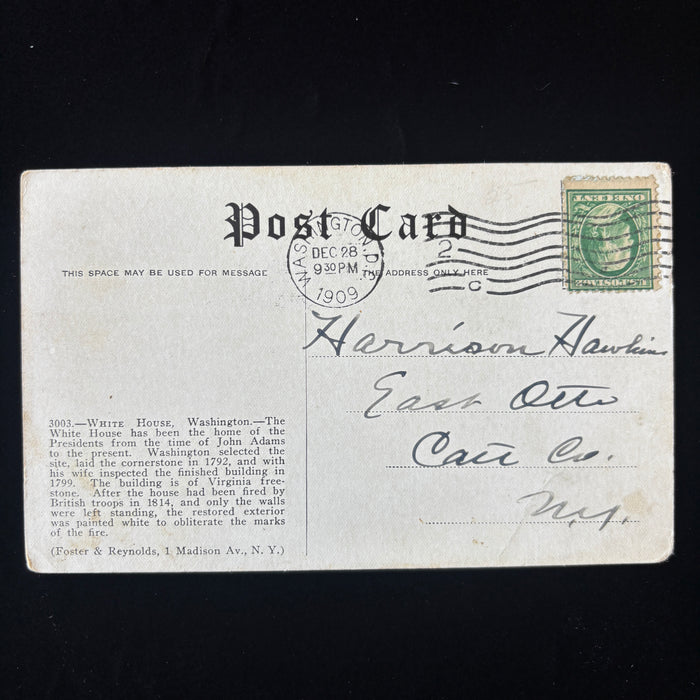 Post Card
WASHINGTON, D.C.
DEC 28
9 30 PM
1909
2
C
THIS SPACE MAY BE USED FOR MESSAGE
THE ADDRESS ONLY HERE
Harrison Hawkins
East Otto
Catt Co.
N.Y.
3003.—WHITE HOUSE, Washington.—The
White House has been the home of the
Presidents from the time of John Adams
to the present. Washington selected the
site, laid the cornerstone in 1792, and with
his wife inspected the finished building in
1799. The building is of Virginia free-
stone. After the house had been fired by
British troops in 1814, and only the walls
were left standing, the restored exterior
was painted white to obliterate the marks
of the fire.
(Foster & Reynolds, 1 Madison Av., N. Y.)